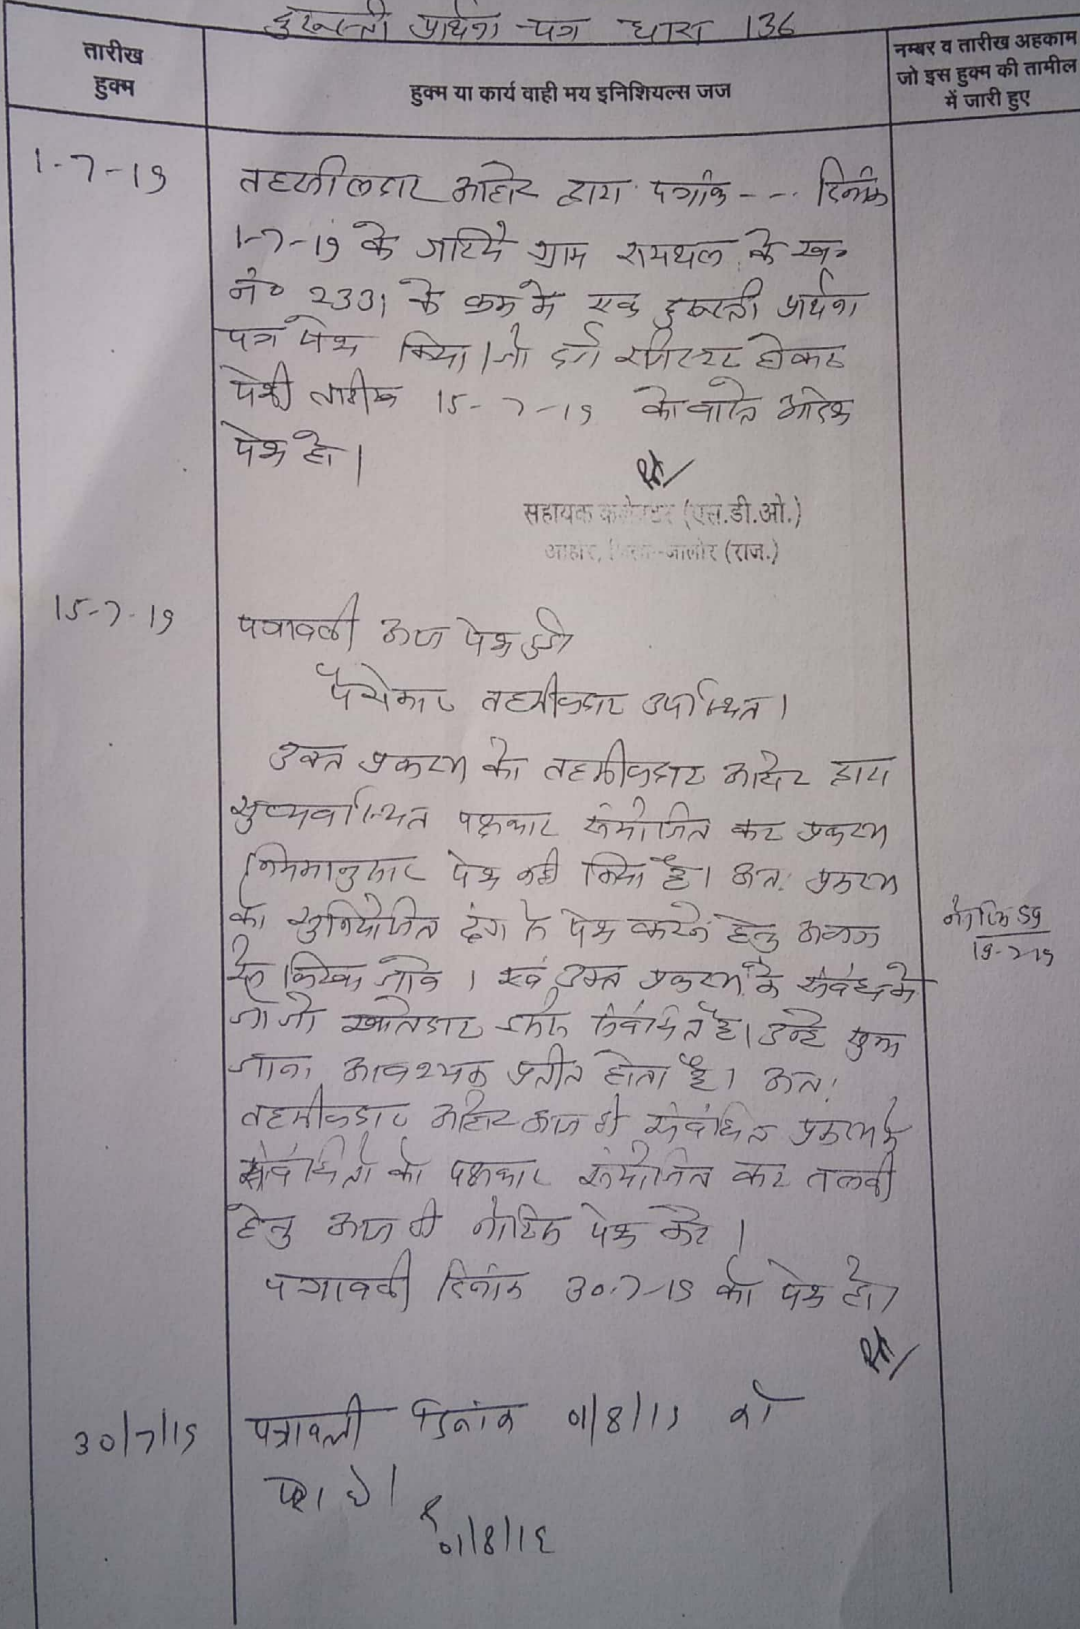 दुरूस्ती प्रार्थना-पत्र धारा 136
तारीख
हुक्म
हुक्म या कार्य वाही मय इनिशियल्स जज
नम्बर व तारीख अहकाम
जो इस हुक्म की तामील
में जारी हुए
1-7-19
तहसीलदार आहोर द्वारा पत्रांक --- दिनांक
1-7-19 के जरिये ग्राम रामथल के ख०
नं० 2331 के क्रम में एक दुरूस्ती प्रार्थना
पत्र पेश किया। जो दर्ज रजिस्टर होकर
पेशी तारीख 15-7-19 को वास्ते आदेश
पेश हो।
सहायक कलेक्टर (एस.डी.ओ.)
आहोर, जिला-जालोर (राज.)
15-7-19
पत्रावली आज पेश हुई
पैरोकार तहसीलदार उपस्थित।
उक्त प्रकरण को तहसीलदार आहोर द्वारा
सुव्यवस्थित पक्षकार संयोजित कर प्रकरण
नियमानुसार पेश नही किया है। अतः प्रकरण
को सुनियोजित ढंग से पेश करने हेतु
जावे। एवं उक्त प्रकरण के संबंध मे
जो जो खातेदार संबंधित है। उन्हे सुना
जाना आवश्यक प्रतीत होता है। अतः
तहसीलदार आहोर आज ही संबंधित प्रकरण के
संबंधितो को पक्षकार संयोजित कर तलबी
हेतु आज ही नोटिस पेश करे।
पत्रावली दिनांक 30-7-19 को पेश हो।
नोटिस 59
19-7-19
30/7/19
पत्रावली दिनांक 01/8/19 को
पेश हो।
01/8/19